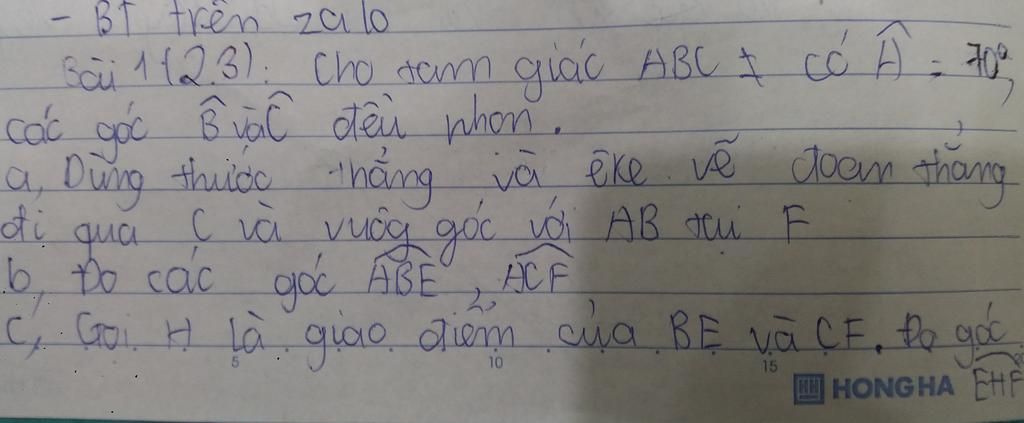 - BT trên zalo
Bài 1 (2.3): Cho tam giác ABC có Â = 70°,
các góc B̂ và Ĉ đều nhọn.
a, Dùng thước thẳng và êke vẽ đoạn thẳng
đi qua C và vuông góc với AB tại F
b, Đo các góc ABE, ACF
c, Gọi H là giao điểm của BE và CF. Đo góc
EHF
5 10 15
HH HONG HA